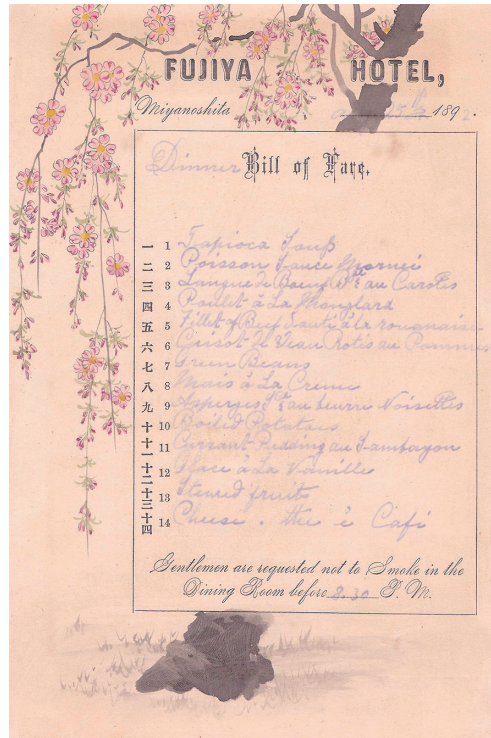 FUJIYA HOTEL,
Miyanoshita 25 189
Dinner Bill of Fare.
一 1 Tapioca Soup
二 2 Poisson Sauce
三 3 Langue de Boeuf au Carotes
四 4 Poulet à La Monglard
五 5 Fillet of Beef Sauté à la rouennaise
六 6 Guisot de Veau Rotis au Pommes
七 7 Green Beans
八 8 Mais à La Creme
九 9 Asperges au beurre Noisettes
十 10 Boiled Potatoes
十一 11 Currant Pudding au Sambayon
十二 12 Glace à La Vanille
十三 13 Stewed fruits
十四 14 Cheese . thee è Cafi
Gentlemen are requested not to Smoke in the
Dining Room before 8.30 P. M.